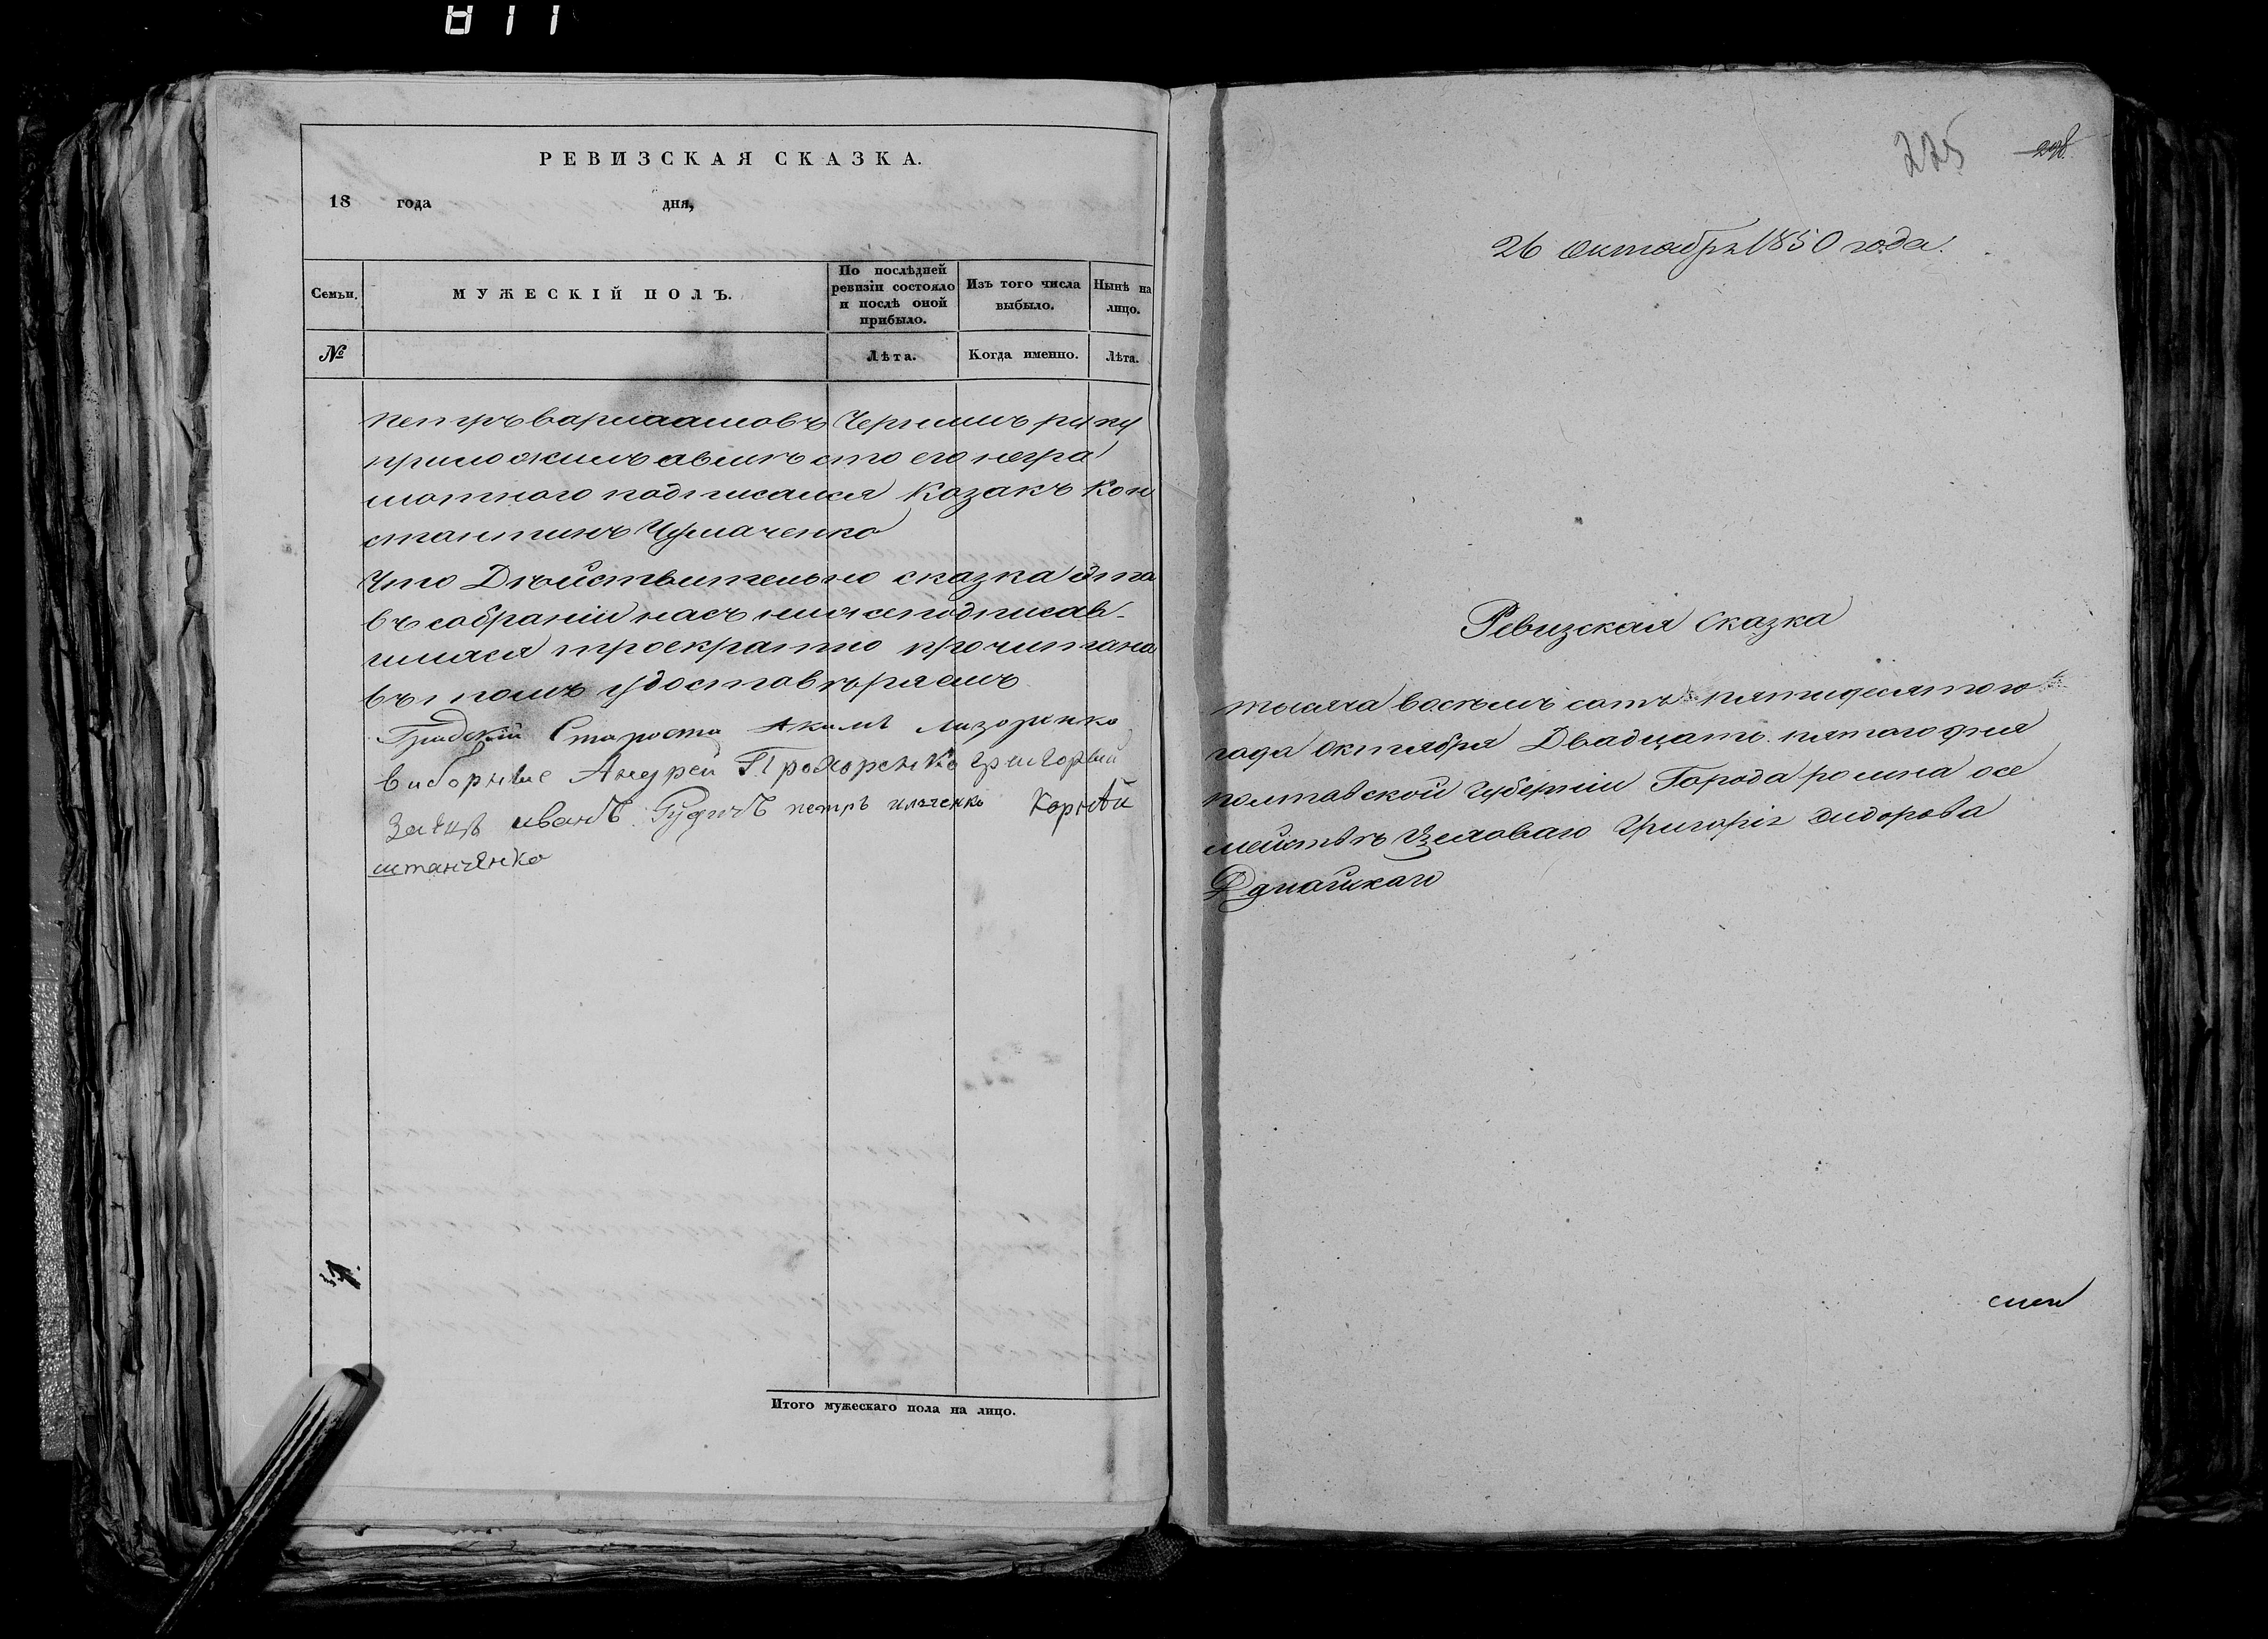 811
РЕВИЗСКАЯ СКАЗКА.
18 года дня,
Семьи.
МУЖЕСКІЙ ПОЛЪ.
По послѣдней ревизіи состояло и послѣ оной прибыло.
Изъ того числа выбыло.
Нынѣ на лицо.
№
Лѣта.
Когда именно.
Лѣта.
Петръ Варлаамовъ руку
приложилъ а вместо его негра
мотного подписался Козакъ Кон
стантинъ Чумаченко
Что Дѣйствительно сказка эта
въ собраніи насъ нижеподписав-
шихся троекратно прочитана
въ томъ удостовѣряемъ
Градскій Староста Акимъ
виборные Андрей Прохоренко григорій
Заецъ иванъ петръ Корнѣй
Итого мужескаго пола на лицо.
225
298.
26 Октября 1850 года.
Ревизская Сказка
тысяча восемь сотъ пятидесятого
года Октября Двадцать пятого дня
Полтавской Губерніи Города ромна осе
Григорія